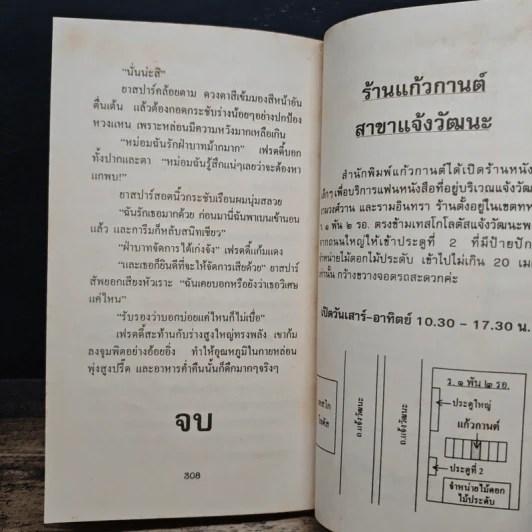 “นั่นน่ะสิ”
ยาสปาร์คล้อยตาม ดวงตาสีเข้มมองสีหน้าอัน
ตื่นเต้น แล้วต้องกอดกระชับร่างน้อยๆอย่างปกป้อง
หวงแหน เพราะหล่อนมีความหวังมากเหลือเกิน
“หม่อมฉันรักฝ่าบาทม้ากมาก” เฟรดดี้บอก
ทั้งปากและตา “หม่อมฉันรู้สึกแน่ๆเลยว่าจะต้องหา
แกพบ!”
ยาสปาร์สอดนิ้วกระชับเรือนผมนุ่มสลวย
“ฉันรักเธอมากด้วย ก่อนมานี่ฉันพาเบนเข้านอน
แล้ว และการีมก็หลับสนิทเชียว”
“ฝ่าบาทจัดการได้เก่งจัง” เฟรดดี้แก้มแดง
“และเธอก็ยินดีที่จะให้จัดการเสียด้วย” ยาสปาร์
สัพยอกเสียงหัวเราะ “ฉันเคยบอกหรือยังว่าเธอวิเศษ
แค่ไหน”
“รับรองว่าบอกบ่อยแค่ไหนก็ไม่เบื่อ”
เฟรดดี้สะท้านกับร่างสูงใหญ่ทรงพลัง เขาก้ม
ลงจุมพิตอย่างอ้อยอิ่ง ทำให้อุณหภูมิในกายหล่อน
พุ่งสูงปรี๊ด และอาหารค่ำคืนนั้นก็ดึกมากๆจริงๆ
จบ
308
ร้านแก้วกานต์
สาขาแจ้งวัฒนะ
สำนักพิมพ์แก้วกานต์ได้เปิดร้านหนัง
เล็กๆเพื่อบริการแฟนหนังสือที่อยู่บริเวณแจ้งวัฒ
งามวงศ์วาน และรามอินทรา ร้านตั้งอยู่ในเขตทห
ร. ๑ พัน ๒ รอ. ตรงข้ามเทสโก้โลตัสแจ้งวัฒนะพ
จากถนนใหญ่ให้เข้าประตูที่ 2 ที่มีป้ายปัก
จำหน่ายไม้ดอกไม้ประดับ เข้าไปไม่เกิน 20 เม
เท่านั้น กว้างขวางจอดรถสะดวกค่ะ
เปิดวันเสาร์-อาทิตย์ 10.30 - 17.30 น.
ร. ๑ พัน ๒ รอ.
ประตูใหญ่
แก้วกานต์
ประตูที่ 2
จำหน่ายไม้ดอก
ไม้ประดับ
เทสโก้
โลตัส
ถ.แจ้งวัฒนะ
ถ.แจ้งวัฒนะ